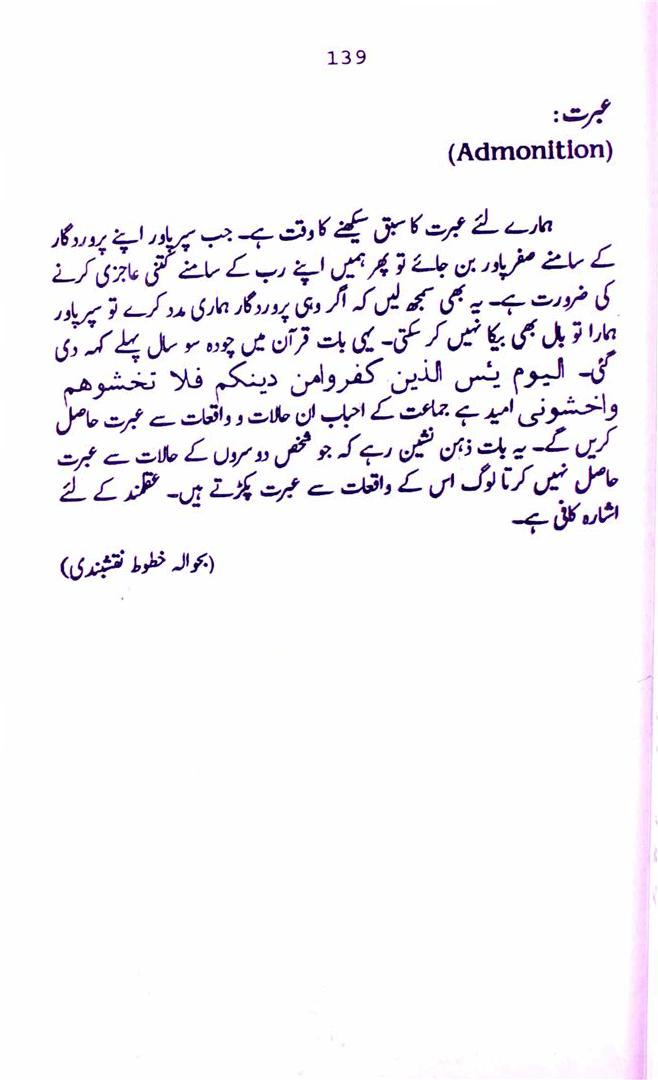 139
عبرت:
(Admonition)
ہمارے لئے عبرت کا سبق سیکھنے کا وقت ہے۔ جب سپرپاور اپنے پروردگار
کے سامنے صفرپاور بن جائے تو پھر ہمیں اپنے رب کے سامنے کتنی عاجزی کرنے
کی ضرورت ہے۔ یہ بھی سمجھ لیں کہ اگر وہی پروردگار ہماری مدد کرے تو سپرپاور
ہمارا تو بال بھی بیکا نہیں کر سکتی۔ یہی بات قرآن میں چودہ سو سال پہلے کہہ دی
گئی۔ اليوم يئس الذين كفروامن دينكم فلا تخشوهم
واخشونى امید ہے جماعت کے احباب ان حالات و واقعات سے عبرت حاصل
کریں گے۔ یہ بات ذہن نشین رہے کہ جو شخص دوسروں کے حالات سے عبرت
حاصل نہیں کرتا لوگ اس کے واقعات سے عبرت پکڑتے ہیں۔ عقلمند کے لئے
اشارہ کافی ہے۔
(بحوالہ خطوط نقشبندی)